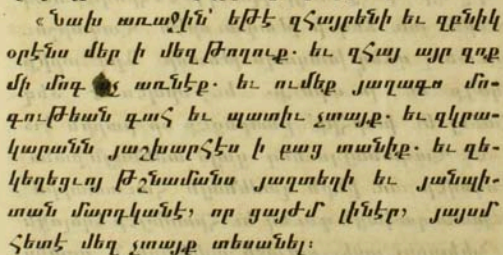 « Նախ առաջին՝ եթէ զՀայրենի եւ զբնիկ
օրէնս մեր ի մեզ թողուք. եւ զՀայ այր զոք
մի մոգ ոչ առնէք. եւ ումեք յաղագս մո-
գութեան գահ եւ պատիւ չտայք. եւ զկրա-
կարանն յաշխարհէս ի բաց տանիք. եւ զե-
կեղեցւոյ թշնամանս յաղտեղի եւ յանպի-
տան մարդկանէ, որ ցայժմ լինէր, յայսմ
հետէ մեզ չտայք տեսանել։